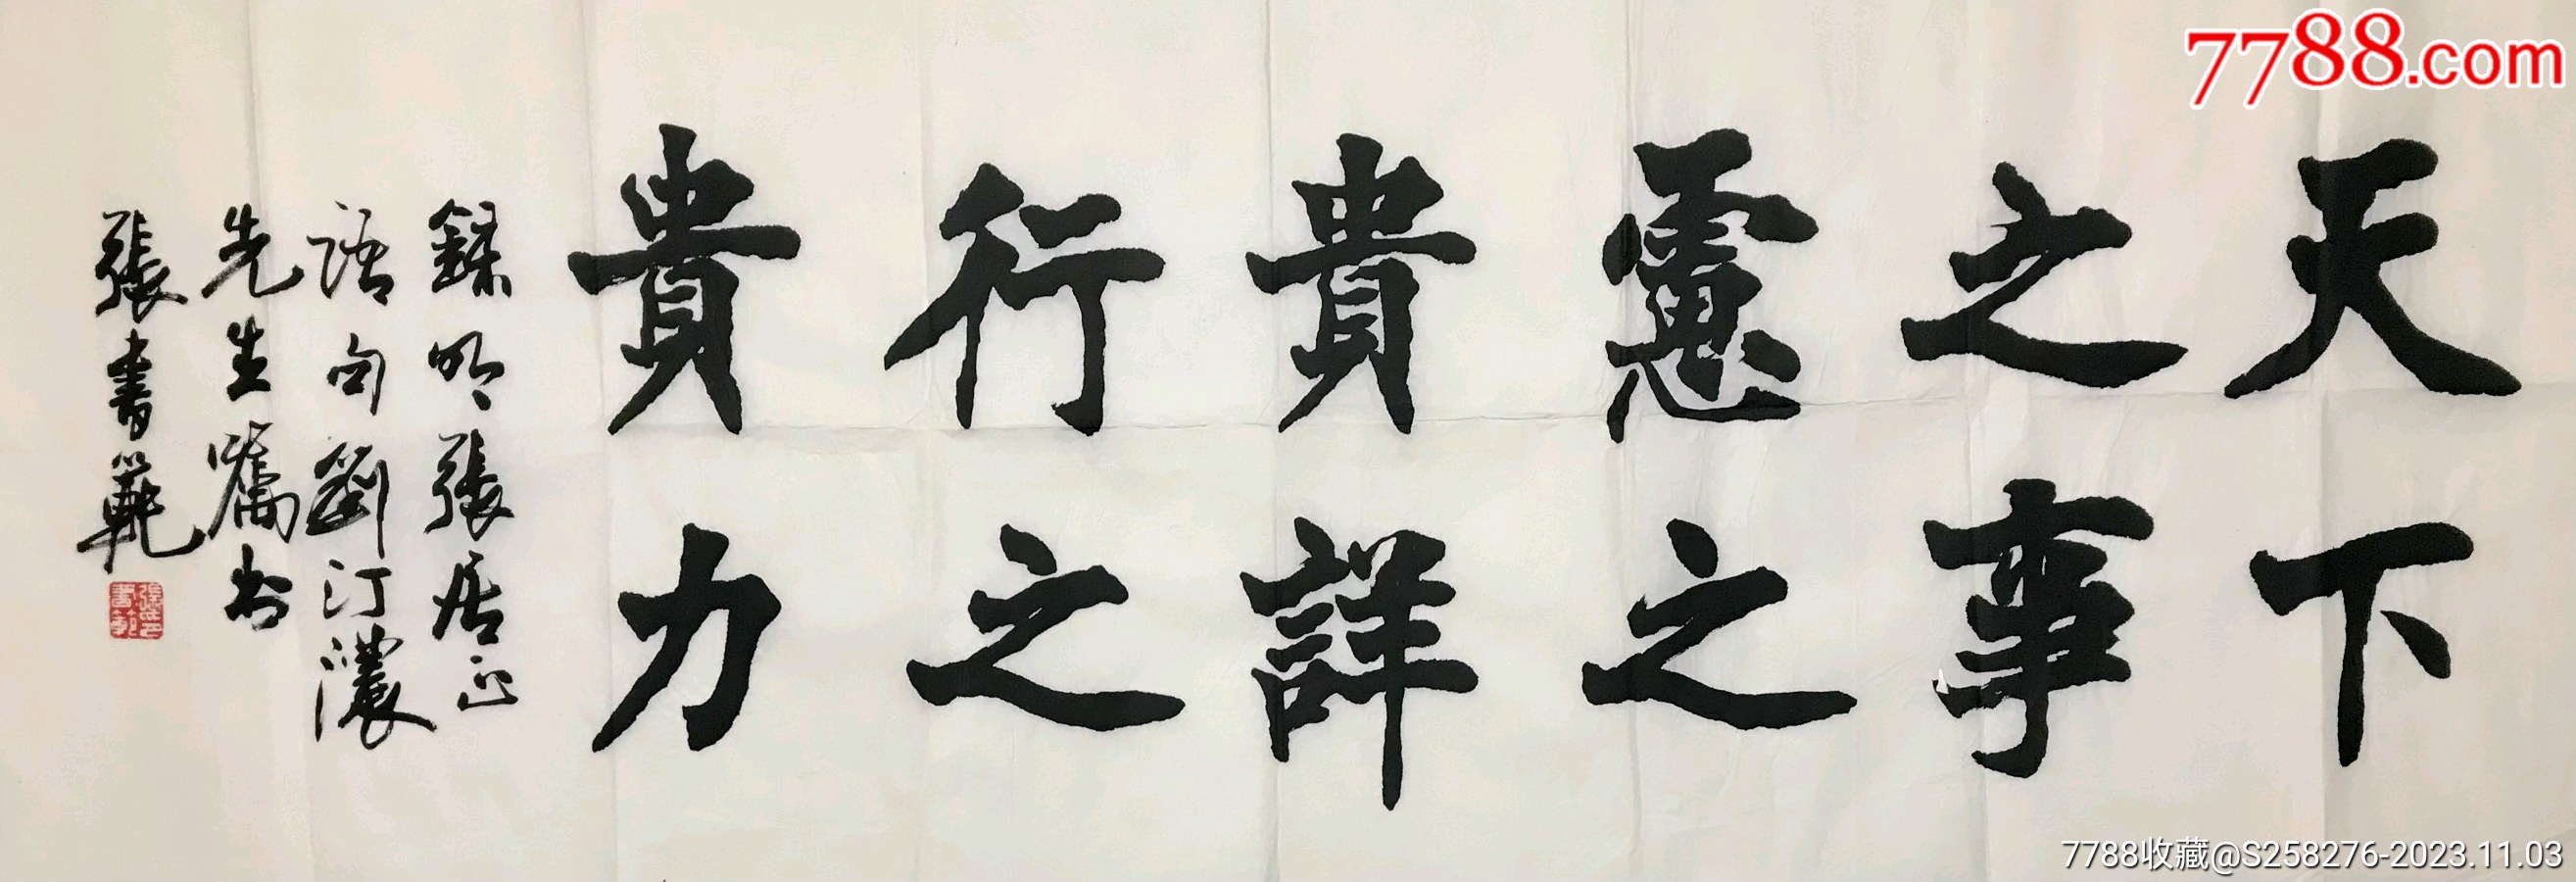 天下
之事
慮之
貴詳
行之
貴力
録明張居正
語句劉汀濃
先生囑书
張書範
7788.com
7788收藏@S258276-2023.11.03